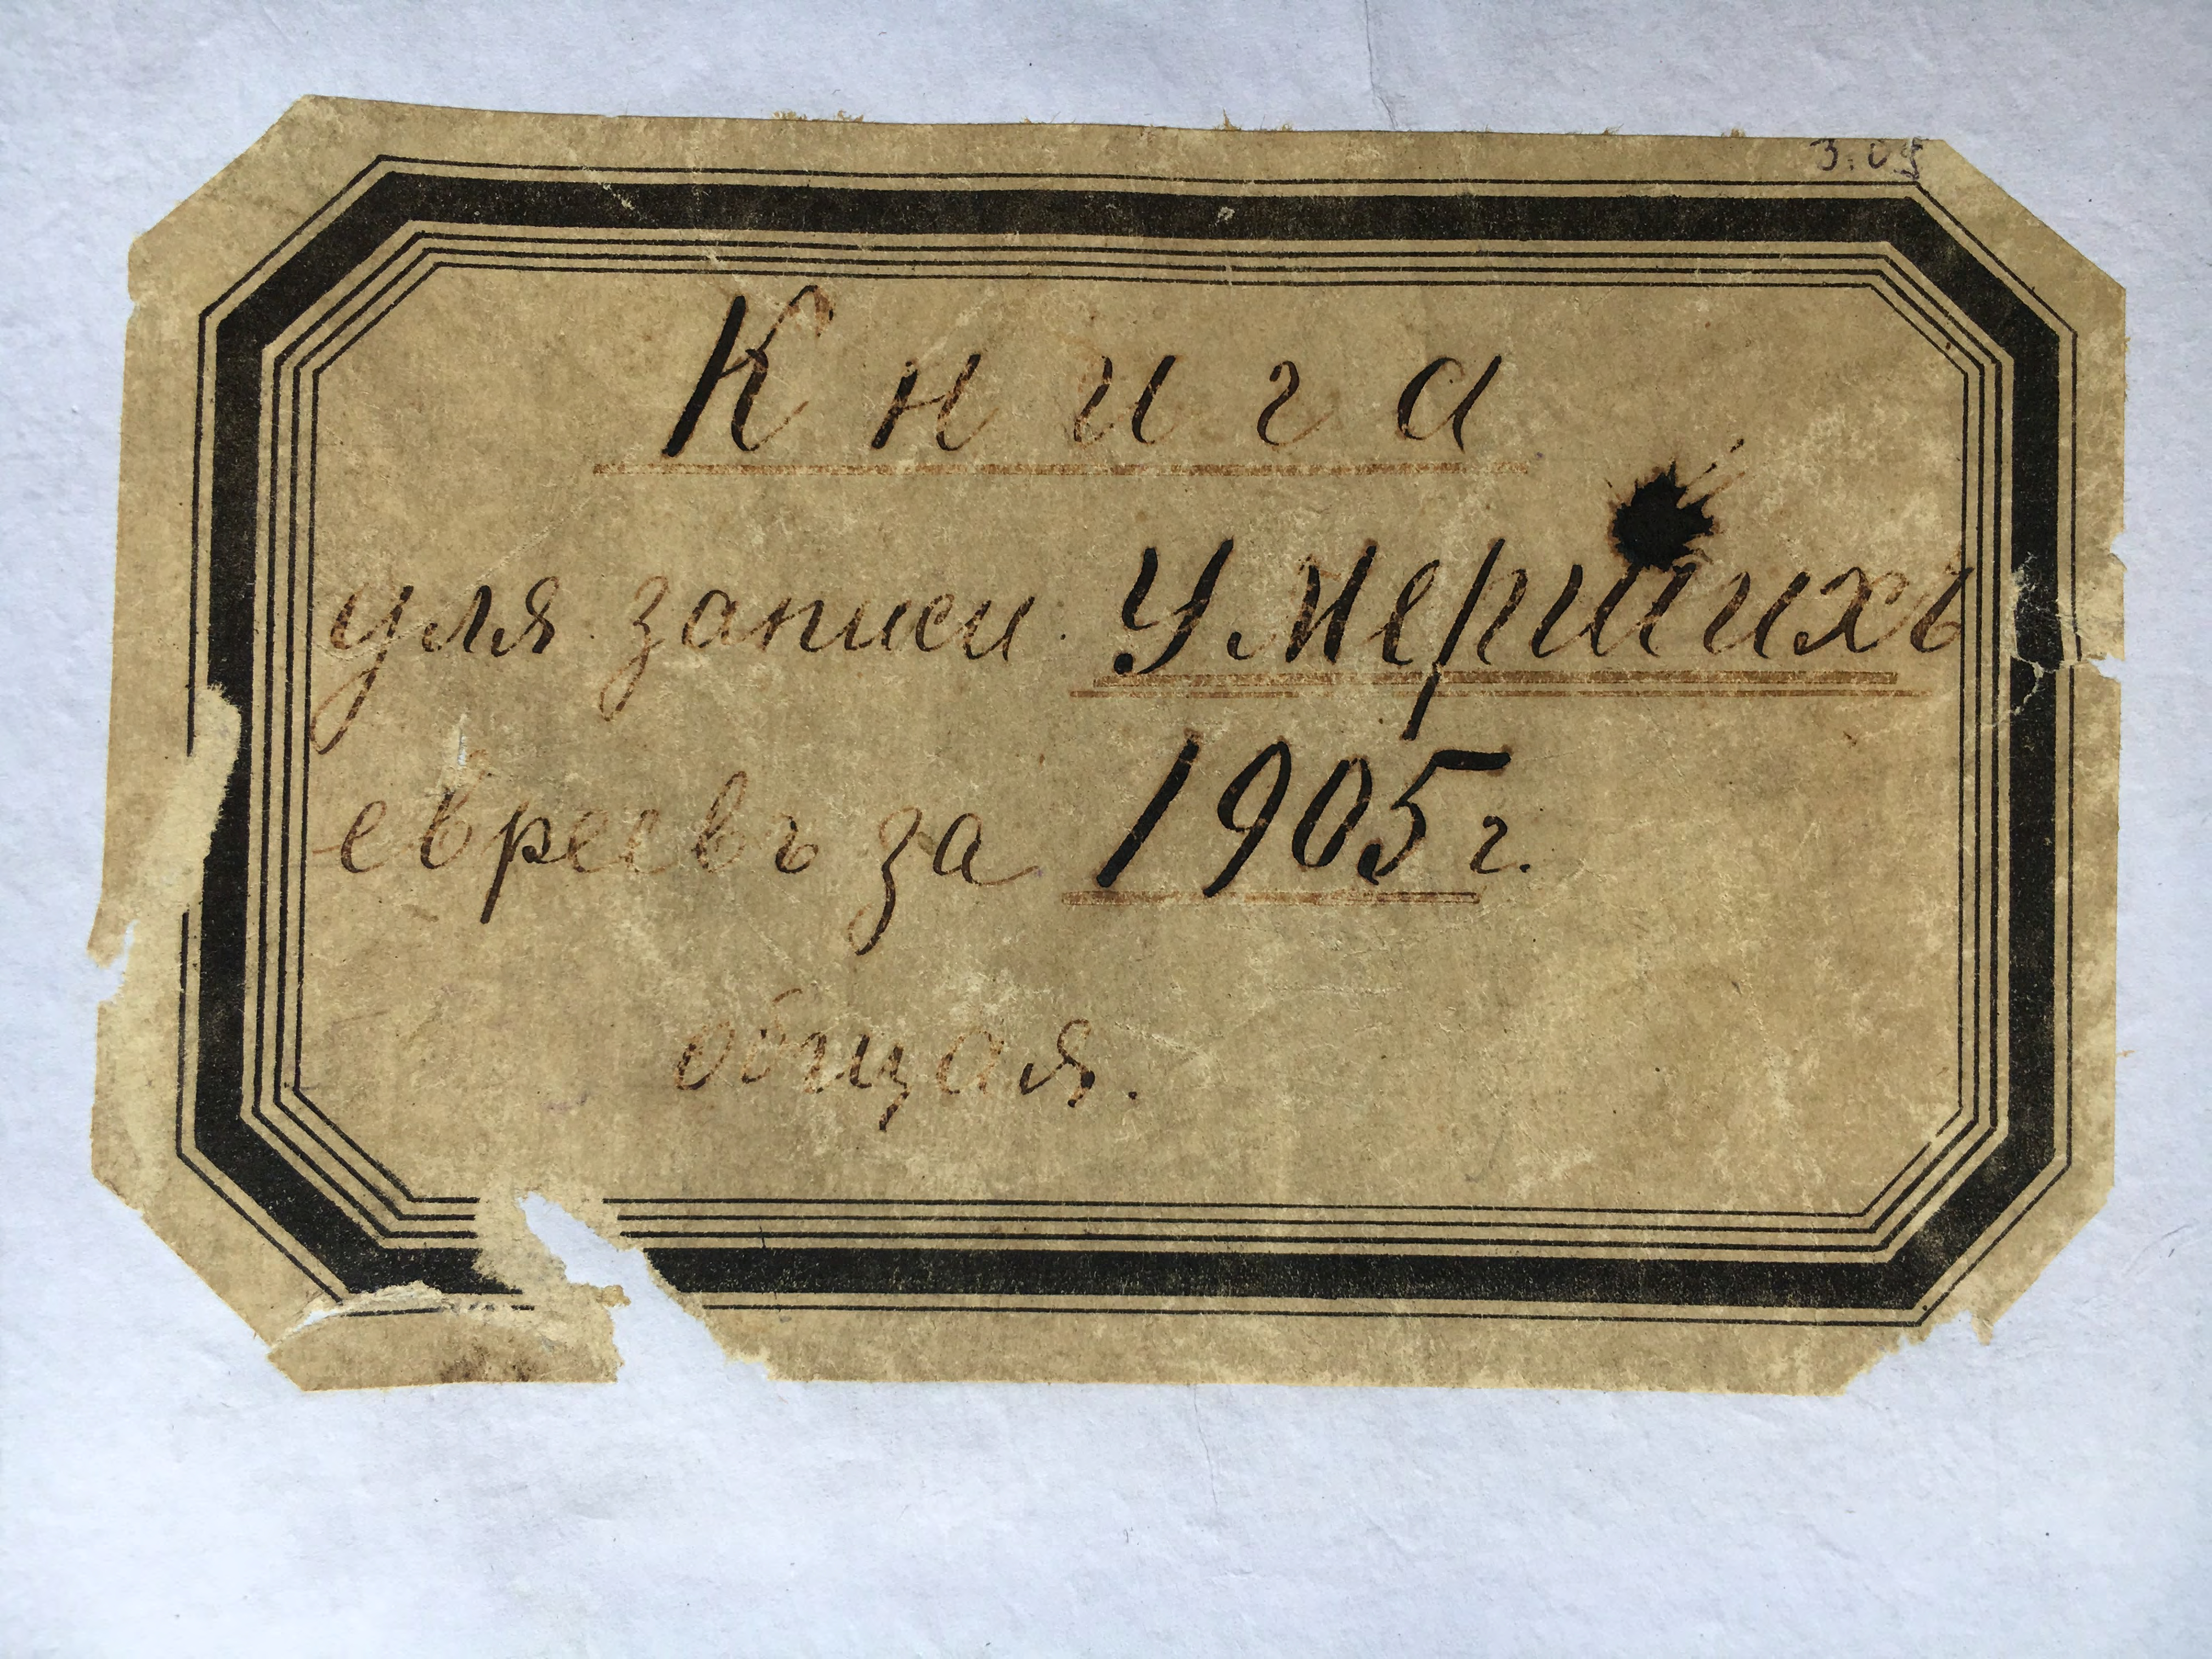 Книга
для записи Умершихъ
евреевъ за 1905 г.
общая.